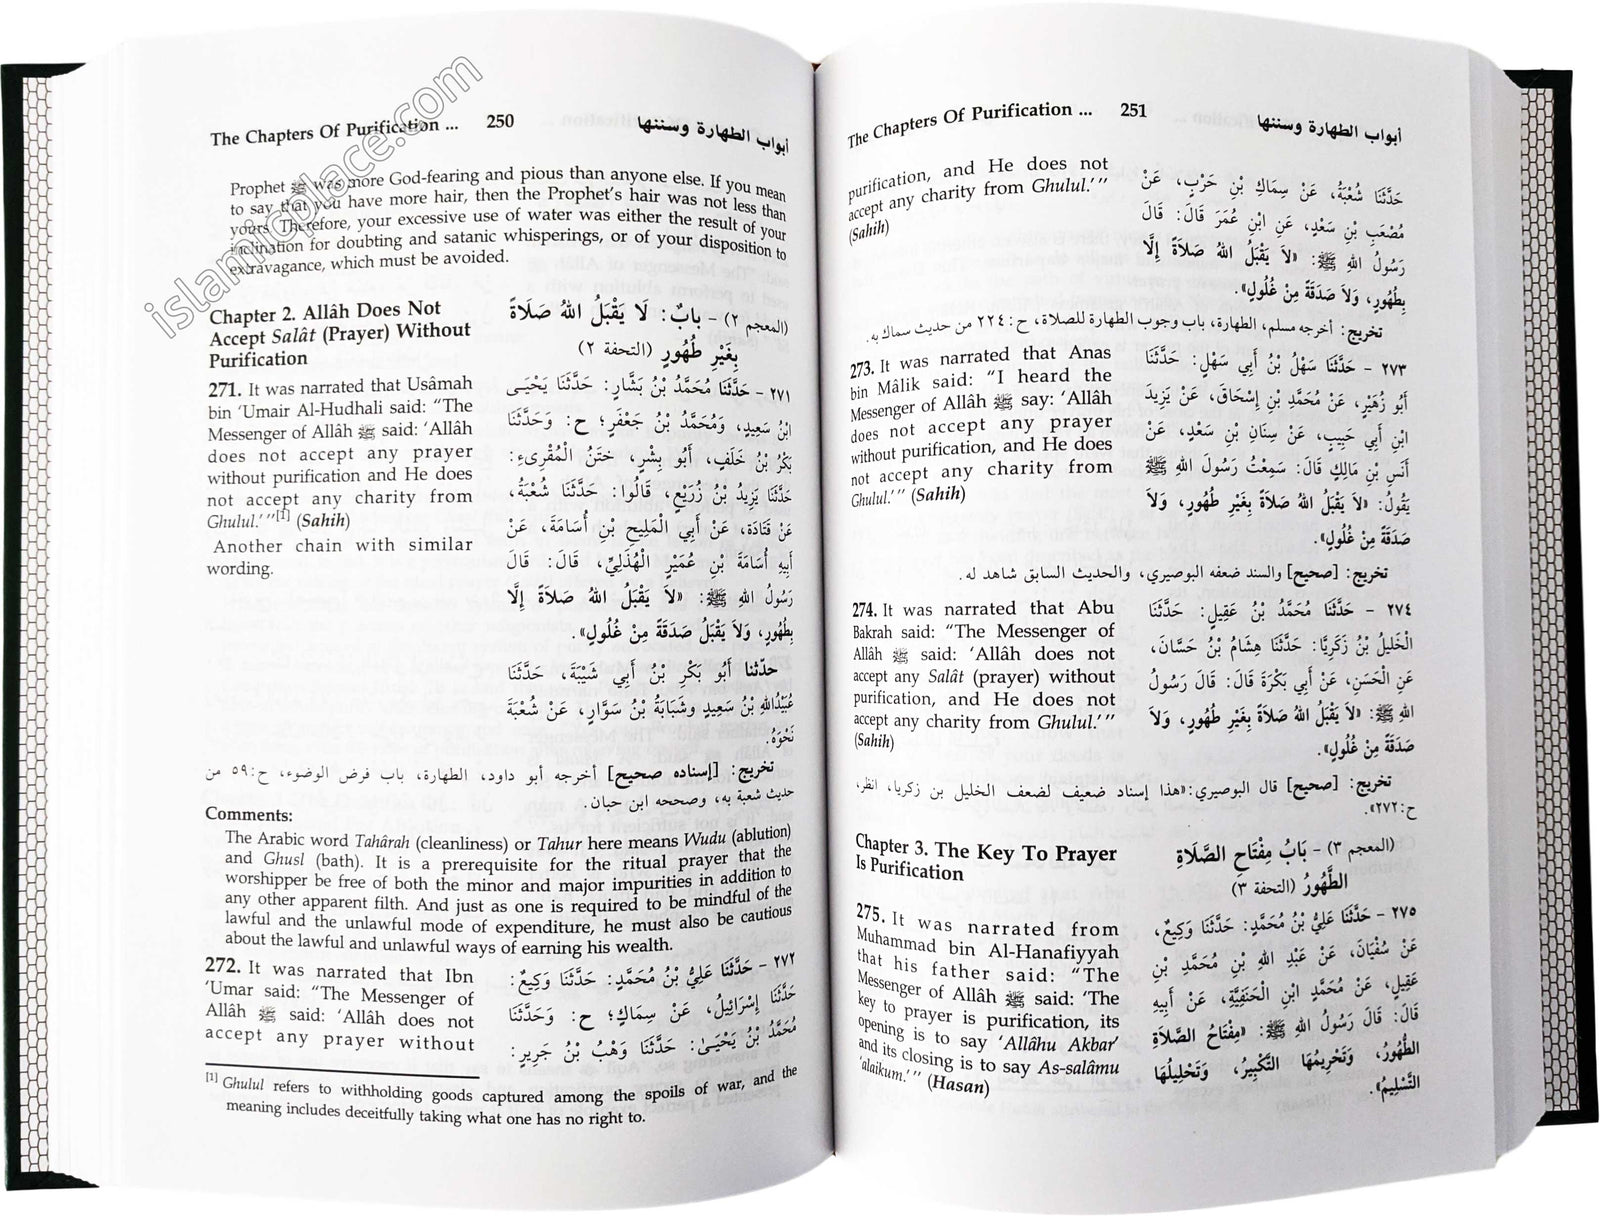 islamicplace.com
The Chapters Of Purification ... 250 أبواب الطهارة وسننها
Prophet ﷺ was more God-fearing and pious than anyone else. If you mean
to say that you have more hair, then the Prophet's hair was not less than
yours. Therefore, your excessive use of water was either the result of your
inclination for doubting and satanic whisperings, or of your disposition to
extravagance, which must be avoided.
Chapter 2. Allâh Does Not
Accept Salât (Prayer) Without
Purification
(المعجم ٢) - بابٌ: لَا يَقْبَلُ اللهُ صَلَاةً
بِغَيْرِ طُهُورٍ (التحفة ٢)
271. It was narrated that Usâmah
bin 'Umair Al-Hudhali said: "The
Messenger of Allâh ﷺ said: 'Allâh
does not accept any prayer
without purification and He does
not accept any charity from
Ghulul.' "[1] (Sahih)
Another chain with similar
wording.
٢٧١ - حَدَّثَنَا مُحَمَّدُ بْنُ بَشَّارٍ: حَدَّثَنَا يَحْيَى
ابْنُ سَعِيدٍ، وَمُحَمَّدُ بْنُ جَعْفَرٍ؛ ح: وَحَدَّثَنَا
بَكْرُ بْنُ خَلَفٍ، أَبُو بِشْرٍ، خَتَنُ الْمُقْرِىءِ:
حَدَّثَنَا يَزِيدُ بْنُ زُرَيْعٍ، قَالُوا: حَدَّثَنَا شُعْبَةُ،
عَنْ قَتَادَةَ، عَنْ أَبِي الْمَلِيحِ بْنِ أُسَامَةَ، عَنْ
أَبِيهِ أُسَامَةَ بْنِ عُمَيْرٍ الْهُذَلِيِّ، قَالَ: قَالَ
رَسُولُ اللهِ ﷺ: «لَا يَقْبَلُ اللهُ صَلَاةً إِلَّا
بِطُهُورٍ، وَلَا يَقْبَلُ صَدَقَةً مِنْ غُلُولٍ».
حدّثنا أَبُو بَكْرِ بْنُ أَبِي شَيْبَةَ، حَدَّثَنَا
عُبَيْدُاللهِ بْنُ سَعِيدٍ وشَبَابَةُ بْنُ سَوَّارٍ، عَنْ شُعْبَةَ
نَحْوَهُ.
تخريج: [إسناده صحيح] أخرجه أبو داود، الطهارة، باب فرض الوضوء، ح:٥٩ من
حديث شعبة به، وصححه ابن حبان.
Comments:
The Arabic word Tahârah (cleanliness) or Tahur here means Wudu (ablution)
and Ghusl (bath). It is a prerequisite for the ritual prayer that the
worshipper be free of both the minor and major impurities in addition to
any other apparent filth. And just as one is required to be mindful of the
lawful and the unlawful mode of expenditure, he must also be cautious
about the lawful and unlawful ways of earning his wealth.
272. It was narrated that Ibn
'Umar said: "The Messenger of
Allâh ﷺ said: 'Allâh does not
accept any prayer without
٢٧٢ - حَدَّثَنَا عَلِيُّ بْنُ مُحَمَّدٍ: حَدَّثَنَا وَكِيعٌ:
حَدَّثَنَا إِسْرَائِيلُ، عَنْ سِمَاكٍ؛ ح: وَحَدَّثَنَا
مُحَمَّدُ بْنُ يَحْيَىٰ: حَدَّثَنَا وَهْبُ بْنُ جَرِيرٍ:
[1] Ghulul refers to withholding goods captured among the spoils of war, and the
meaning includes deceitfully taking what one has no right to.
The Chapters Of Purification ... 251 أبواب الطهارة وسننها
purification, and He does not
accept any charity from Ghulul.' "
(Sahih)
حَدَّثَنَا شُعْبَةُ، عَنْ سِمَاكِ بْنِ حَرْبٍ، عَنْ
مُصْعَبِ بْنِ سَعْدٍ، عَنِ ابْنِ عُمَرَ قَالَ: قَالَ
رَسُولُ اللهِ ﷺ: «لَا يَقْبَلُ اللهُ صَلَاةً إِلَّا
بِطُهُورٍ، وَلَا صَدَقَةً مِنْ غُلُولٍ».
تخريج: أخرجه مسلم، الطهارة، باب وجوب الطهارة للصلاة، ح:٢٢٤ من حديث سماك به.
273. It was narrated that Anas
bin Mâlik said: "I heard the
Messenger of Allâh ﷺ say: 'Allâh
does not accept any prayer
without purification, and He does
not accept any charity from
Ghulul.' " (Sahih)
٢٧٣ - حَدَّثَنَا سَهْلُ بْنُ أَبِي سَهْلٍ: حَدَّثَنَا
أَبُو زُهَيْرٍ، عَنْ مُحَمَّدِ بْنِ إِسْحَاقَ، عَنْ يَزِيدَ
ابْنِ أَبِي حَبِيبٍ، عَنْ سِنَانِ بْنِ سَعْدٍ، عَنْ
أَنَسِ بْنِ مَالِكٍ قَالَ: سَمِعْتُ رَسُولَ اللهِ ﷺ
يَقُولُ: «لَا يَقْبَلُ اللهُ صَلَاةً بِغَيْرِ طُهُورٍ، وَلَا
صَدَقَةً مِنْ غُلُولٍ».
تخريج: [صحيح] والسند ضعفه البوصيري، والحديث السابق شاهد له.
274. It was narrated that Abu
Bakrah said: "The Messenger of
Allâh ﷺ said: 'Allâh does not
accept any Salât (prayer) without
purification, and He does not
accept any charity from Ghulul.' "
(Sahih)
٢٧٤ - حَدَّثَنَا مُحَمَّدُ بْنُ عَقِيلٍ: حَدَّثَنَا
الْخَلِيلُ بْنُ زَكَرِيَّا: حَدَّثَنَا هِشَامُ بْنُ حَسَّانَ،
عَنِ الْحَسَنِ، عَنْ أَبِي بَكْرَةَ قَالَ: قَالَ رَسُولُ
اللهِ ﷺ: «لَا يَقْبَلُ اللهُ صَلَاةً بِغَيْرِ طُهُورٍ، وَلَا
صَدَقَةً مِنْ غُلُولٍ».
تخريج: [صحيح] قال البوصيري: «هذا إسناد ضعيف لضعف الخليل بن زكريا، انظر،
ح:٢٧٢».
Chapter 3. The Key To Prayer
Is Purification
(المعجم ٣) - بَابُ مِفْتَاحِ الصَّلَاةِ
الطُّهُورُ (التحفة ٣)
275. It was narrated from
Muhammad bin Al-Hanafiyyah
that his father said: "The
Messenger of Allâh ﷺ said: 'The
key to prayer is purification, its
opening is to say 'Allâhu Akbar'
and its closing is to say As-salâmu
'alaikum.' " (Hasan)
٢٧٥ - حَدَّثَنَا عَلِيُّ بْنُ مُحَمَّدٍ: حَدَّثَنَا وَكِيعٌ،
عَنْ سُفْيَانَ، عَنْ عَبْدِ اللهِ بْنِ مُحَمَّدِ بْنِ
عَقِيلٍ، عَنْ مُحَمَّدِ ابْنِ الْحَنَفِيَّةِ، عَنْ أَبِيهِ
قَالَ: قَالَ رَسُولُ اللهِ ﷺ: «مِفْتَاحُ الصَّلَاةِ
الطُّهُورُ، وَتَحْرِيمُهَا التَّكْبِيرُ، وَتَحْلِيلُهَا
التَّسْلِيمُ».